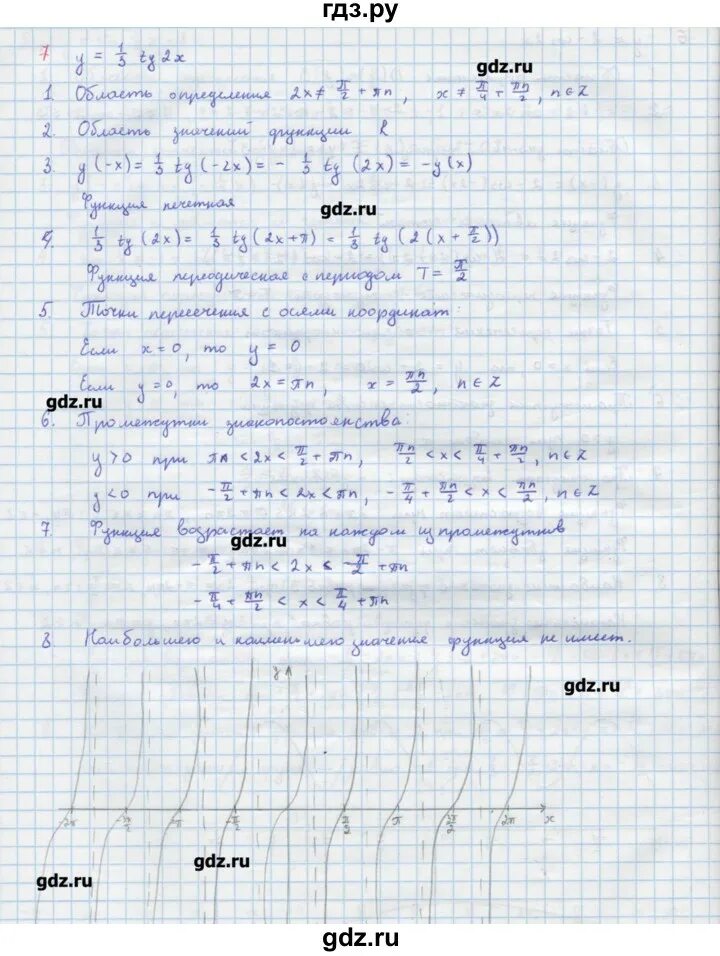 гдз.ру
7 y = 1/3 tg 2x
gdz.ru
1. Область определения 2x ≠ π/2 + πn, x ≠ π/4 + πn/2, n ∈ Z
2. Область значений функции R
3. y(-x) = 1/3 tg(-2x) = - 1/3 tg(2x) = -y(x)
Функция нечетная
gdz.ru
4. 1/3 tg(2x) = 1/3 tg(2x+π) = 1/3 tg(2(x + π/2))
Функция переодическая с периодом T = π/2
5. Точки пересечения с осями координат:
Если x=0, то y = 0
Если y=0, то 2x = πn, x = πn/2, n ∈ Z
gdz.ru
6. Прометутки знакопостоянства:
y > 0 при πn < 2x < π/2 + πn, πn/2 < x < π/4 + πn/2, n ∈ Z
y < 0 при -π/2 + πn < 2x < πn, -π/4 + πn/2 < x < πn/2, n ∈ Z
7. Функция возрастает на каждом из прометутков
gdz.ru
-π/2 + πn < 2x < -π/2 + πn
-π/4 + πn/2 < x < π/4 + πn
8. Наибольшего и наименьшего значения функция не имеет.
y
gdz.ru
-2π -π -π/2 π/2 π 3π/2 2π x
gdz.ru
gdz.ru
gdz.ru